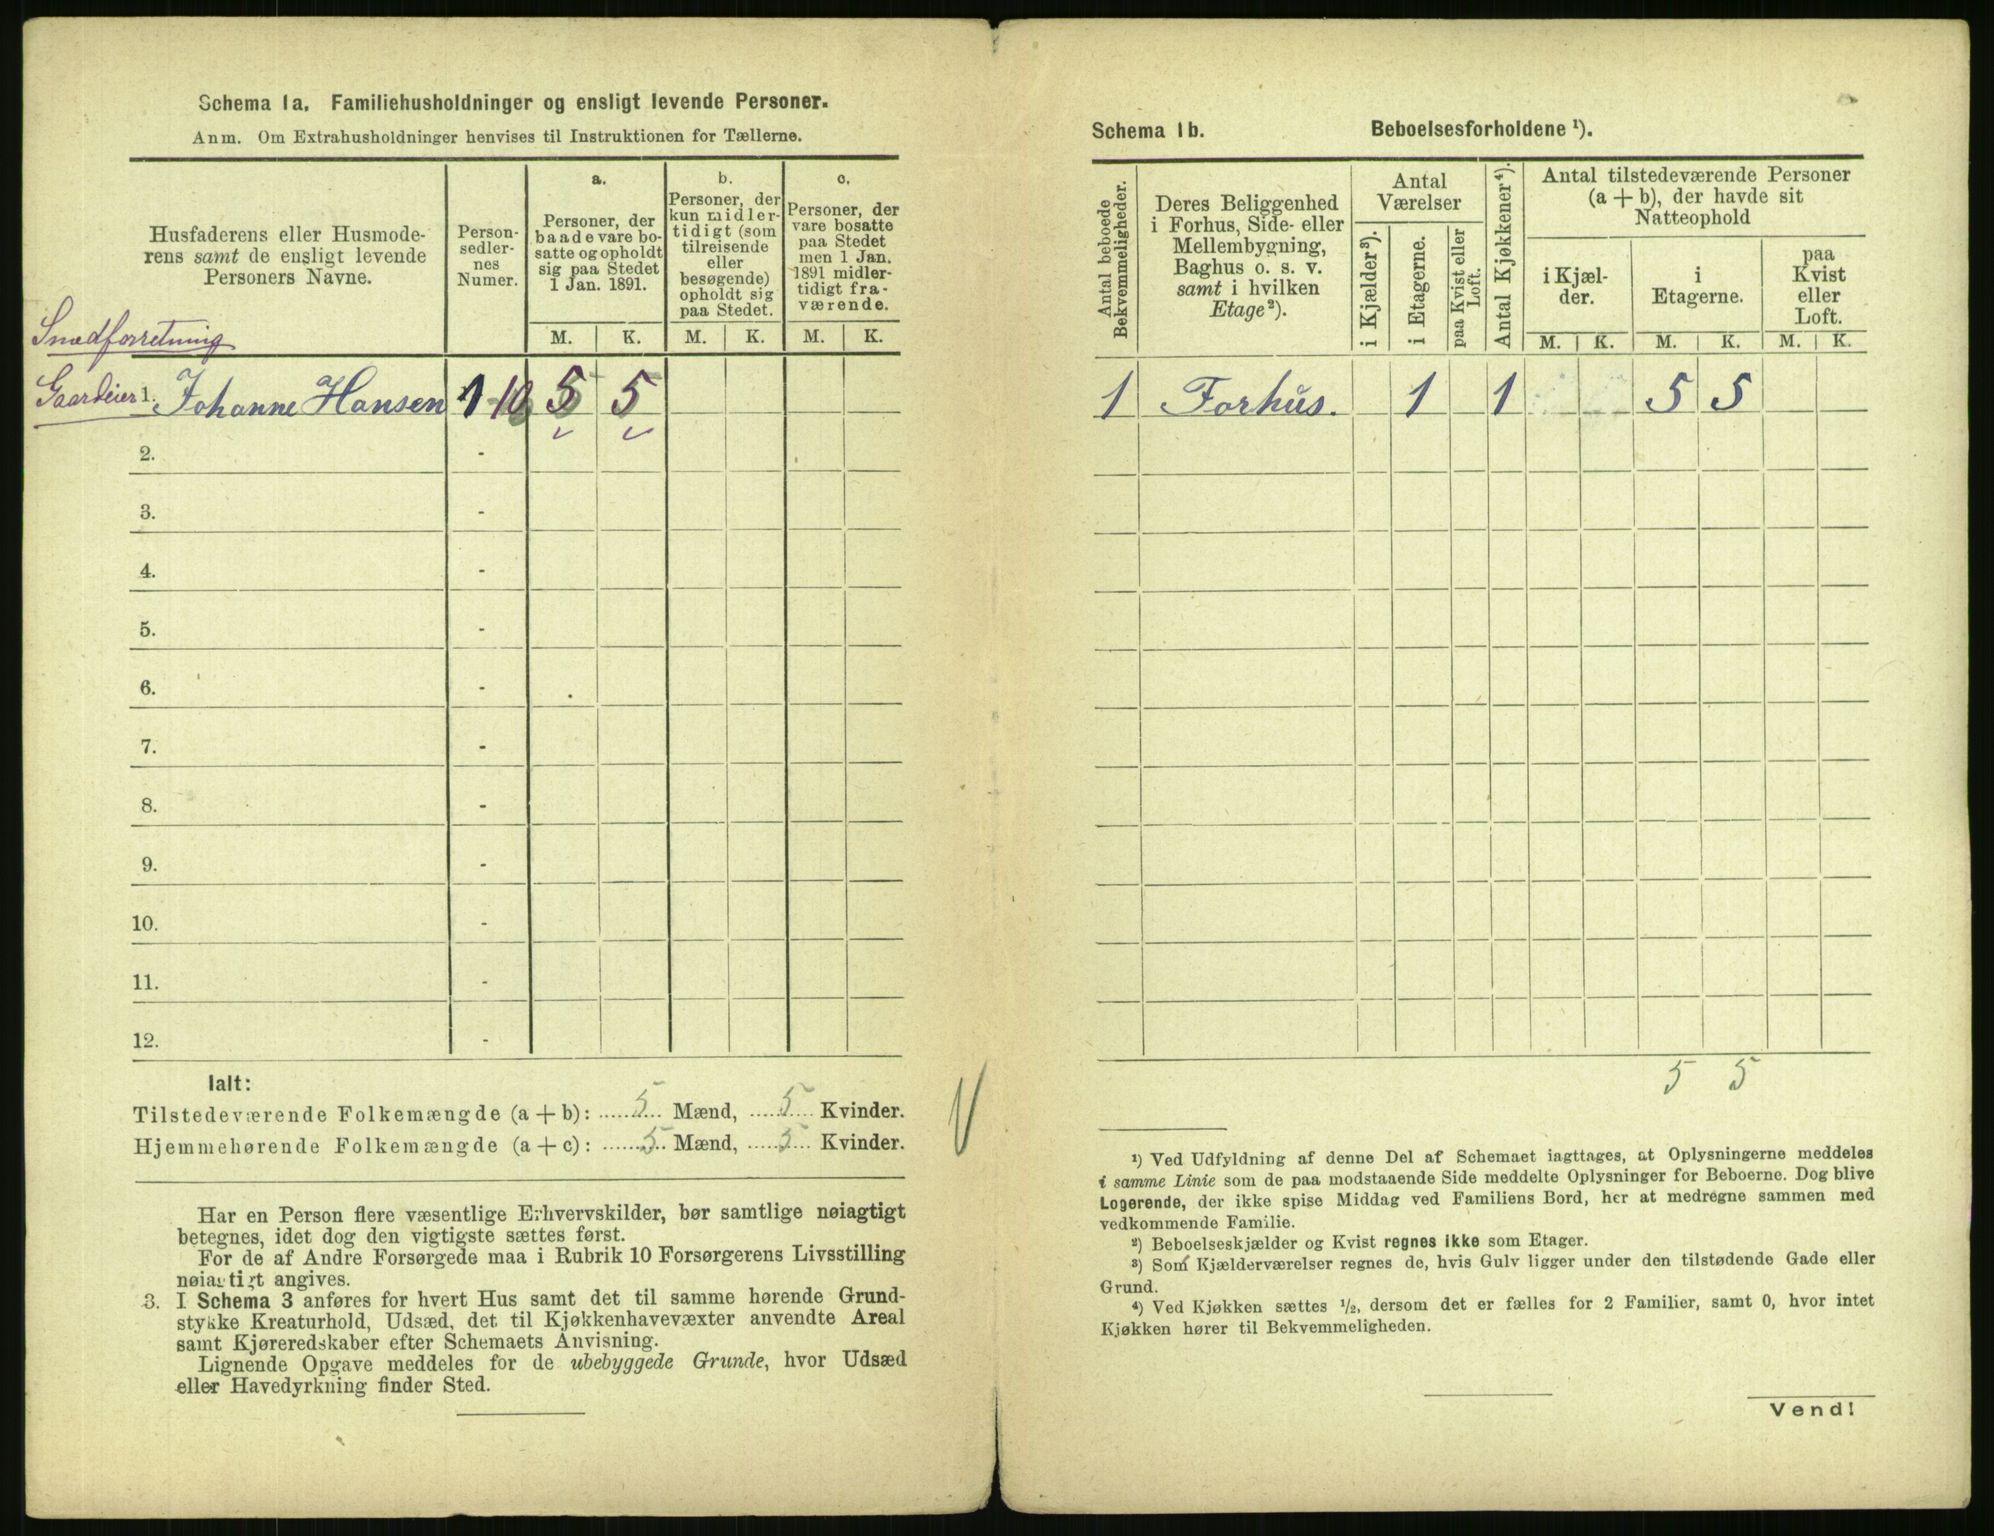 Schema 1a. Familiehusholdninger og ensligt levende Personer.
Anm. Om Extrahusholdninger henvises til Instruktionen for Tællerne.
Husfaderens eller Husmode-
rens samt de ensligt levende
Personers Navne.
Person-
sedler-
nes
Numer.
a.
Personer, der
baade vare bo-
satte og opholdt
sig paa Stedet
1 Jan. 1891.
b.
Personer, der
kun midler-
tidigt (som
tilreisende
eller
besøgende)
opholdt sig
paa Stedet.
c.
Personer, der
vare bosatte
paa Stedet
men 1 Jan.
1891 midler-
tidigt fra-
værende.
M. K. M. K. M. K.
Smedforretning
Gaardeier 1. Johanne Hansen 1-10 5 5
2. -
3. -
4. -
5. -
6. -
7. -
8. -
9. -
10. -
11. -
12. -
Ialt:
Tilstedeværende Folkemængde (a + b): 5 Mænd, 5 Kvinder.
Hjemmehørende Folkemængde (a + c): 5 Mænd, 5 Kvinder.
Har en Person flere væsentlige Erhvervskilder, bør samtlige nøiagtigt
betegnes, idet dog den vigtigste sættes først.
For de af Andre Forsørgede maa i Rubrik 10 Forsørgerens Livsstilling
nøiagtigt angives.
3. I Schema 3 anføres for hvert Hus samt det til samme hørende Grund-
stykke Kreaturhold, Udsæd, det til Kjøkkenhavevæxter anvendte Areal
samt Kjøreredskaber efter Schemaets Anvisning.
Lignende Opgave meddeles for de ubebyggede Grunde, hvor Udsæd
eller Havedyrkning finder Sted.
Schema 1b. Beboelsesforholdene ¹).
Antal beboede
Bekvemmeligheder.
Deres Beliggenhed
i Forhus, Side- eller
Mellembygning,
Baghus o. s. v.
samt i hvilken
Etage²).
Antal
Værelser
i Kjælder³).
i Etagerne.
paa Kvist eller
Loft.
Antal Kjøkkener⁴).
Antal tilstedeværende Personer
(a + b), der havde sit
Natteophold
i Kjæl-
der.
i
Etagerne.
paa
Kvist
eller
Loft.
M. K. M. K. M. K.
1 Forhus. 1 1 5 5
5 5
¹) Ved Udfyldning af denne Del af Schemaet iagttages, at Oplysningerne meddeles
i samme Linie som de paa modstaaende Side meddelte Oplysninger for Beboerne. Dog blive
Logerende, der ikke spise Middag ved Familiens Bord, her at medregne sammen med
vedkommende Familie.
²) Beboelseskjælder og Kvist regnes ikke som Etager.
³) Som Kjælderværelser regnes de, hvis Gulv ligger under den tilstødende Gade eller
Grund.
⁴) Ved Kjøkken sættes ½, dersom det er fælles for 2 Familier, samt 0, hvor intet
Kjøkken hører til Bekvemmeligheden.
Vend!